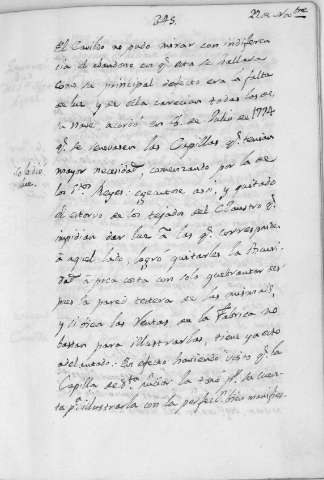 345.
22 de Nov.bre
El Cavildo no pudo mirar con indiferen
cia el abandono en q.e esta se hallava
Como su principal defecto era la falta
de luz y de ella carecian todas las de
la Nave acordó en de Julio de 1774
q.e se renovasen las Capillas q.e tenian
mayor necesidad, comenzando por la de
los S.tos Reyes: egecutose asi, y quitado
el estorvo de los tejados del Claustro q.e
impidian dar luz a las q.e corresponden
à aquel lado, logró quitarles la obscuri-
dad à poca costa con solo quebrantar des
pues la pared testera de las mismas,
y si bien las Ventas en la Fabrica no
bastan para illustrarlas, tiene ya esto
adelantado. En efecto haviendo visto q.e la
Capilla de S.ta Lucia la tomó p.r su cuen-
ta p.a illustrarla con la perfec.n q.e hoy manifies-